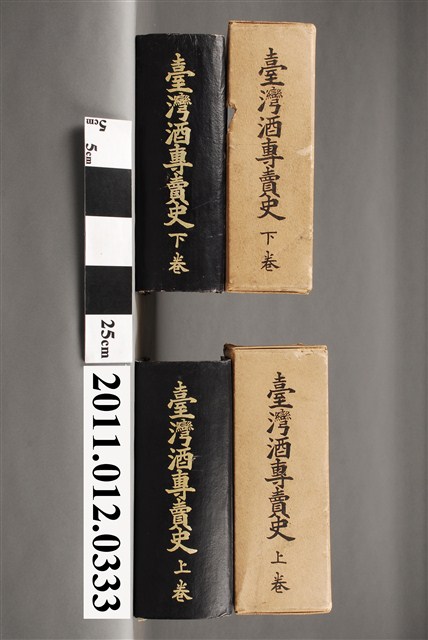 臺灣酒專賣史 下卷
臺灣酒專賣史 下卷
臺灣酒專賣史 上卷
臺灣酒專賣史 上卷
5cm
5cm
25cm
2011.012.0333